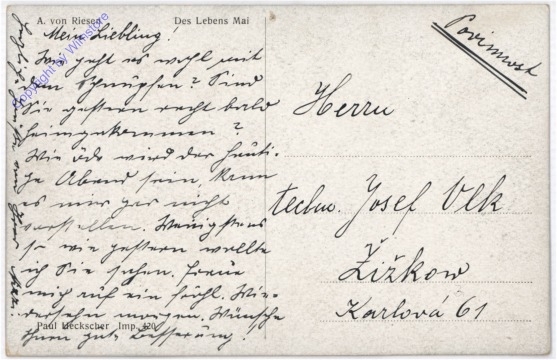 A. von Riesen
Des Lebens Mai
Copyright by Wimstore
Mein Liebling!
Wie geht es wohl mit
dem Schnupfen? Sind
Sie gestern recht bald
heimgekommen?
Wie öde wird der heuti-
ge Abend sein kann
es mir gar nicht
vorstellen. Wenigstens
so wie gestern wollte
ich Sie sehen. Freue
mich auf ein fröhl. Wie-
dersehen morgen. Wünsche
Ihnen gute Besserung!
Paul Heckscher Imp. 420
Herrn
techn. Josef Vlk
Žižkow
Karlová 61